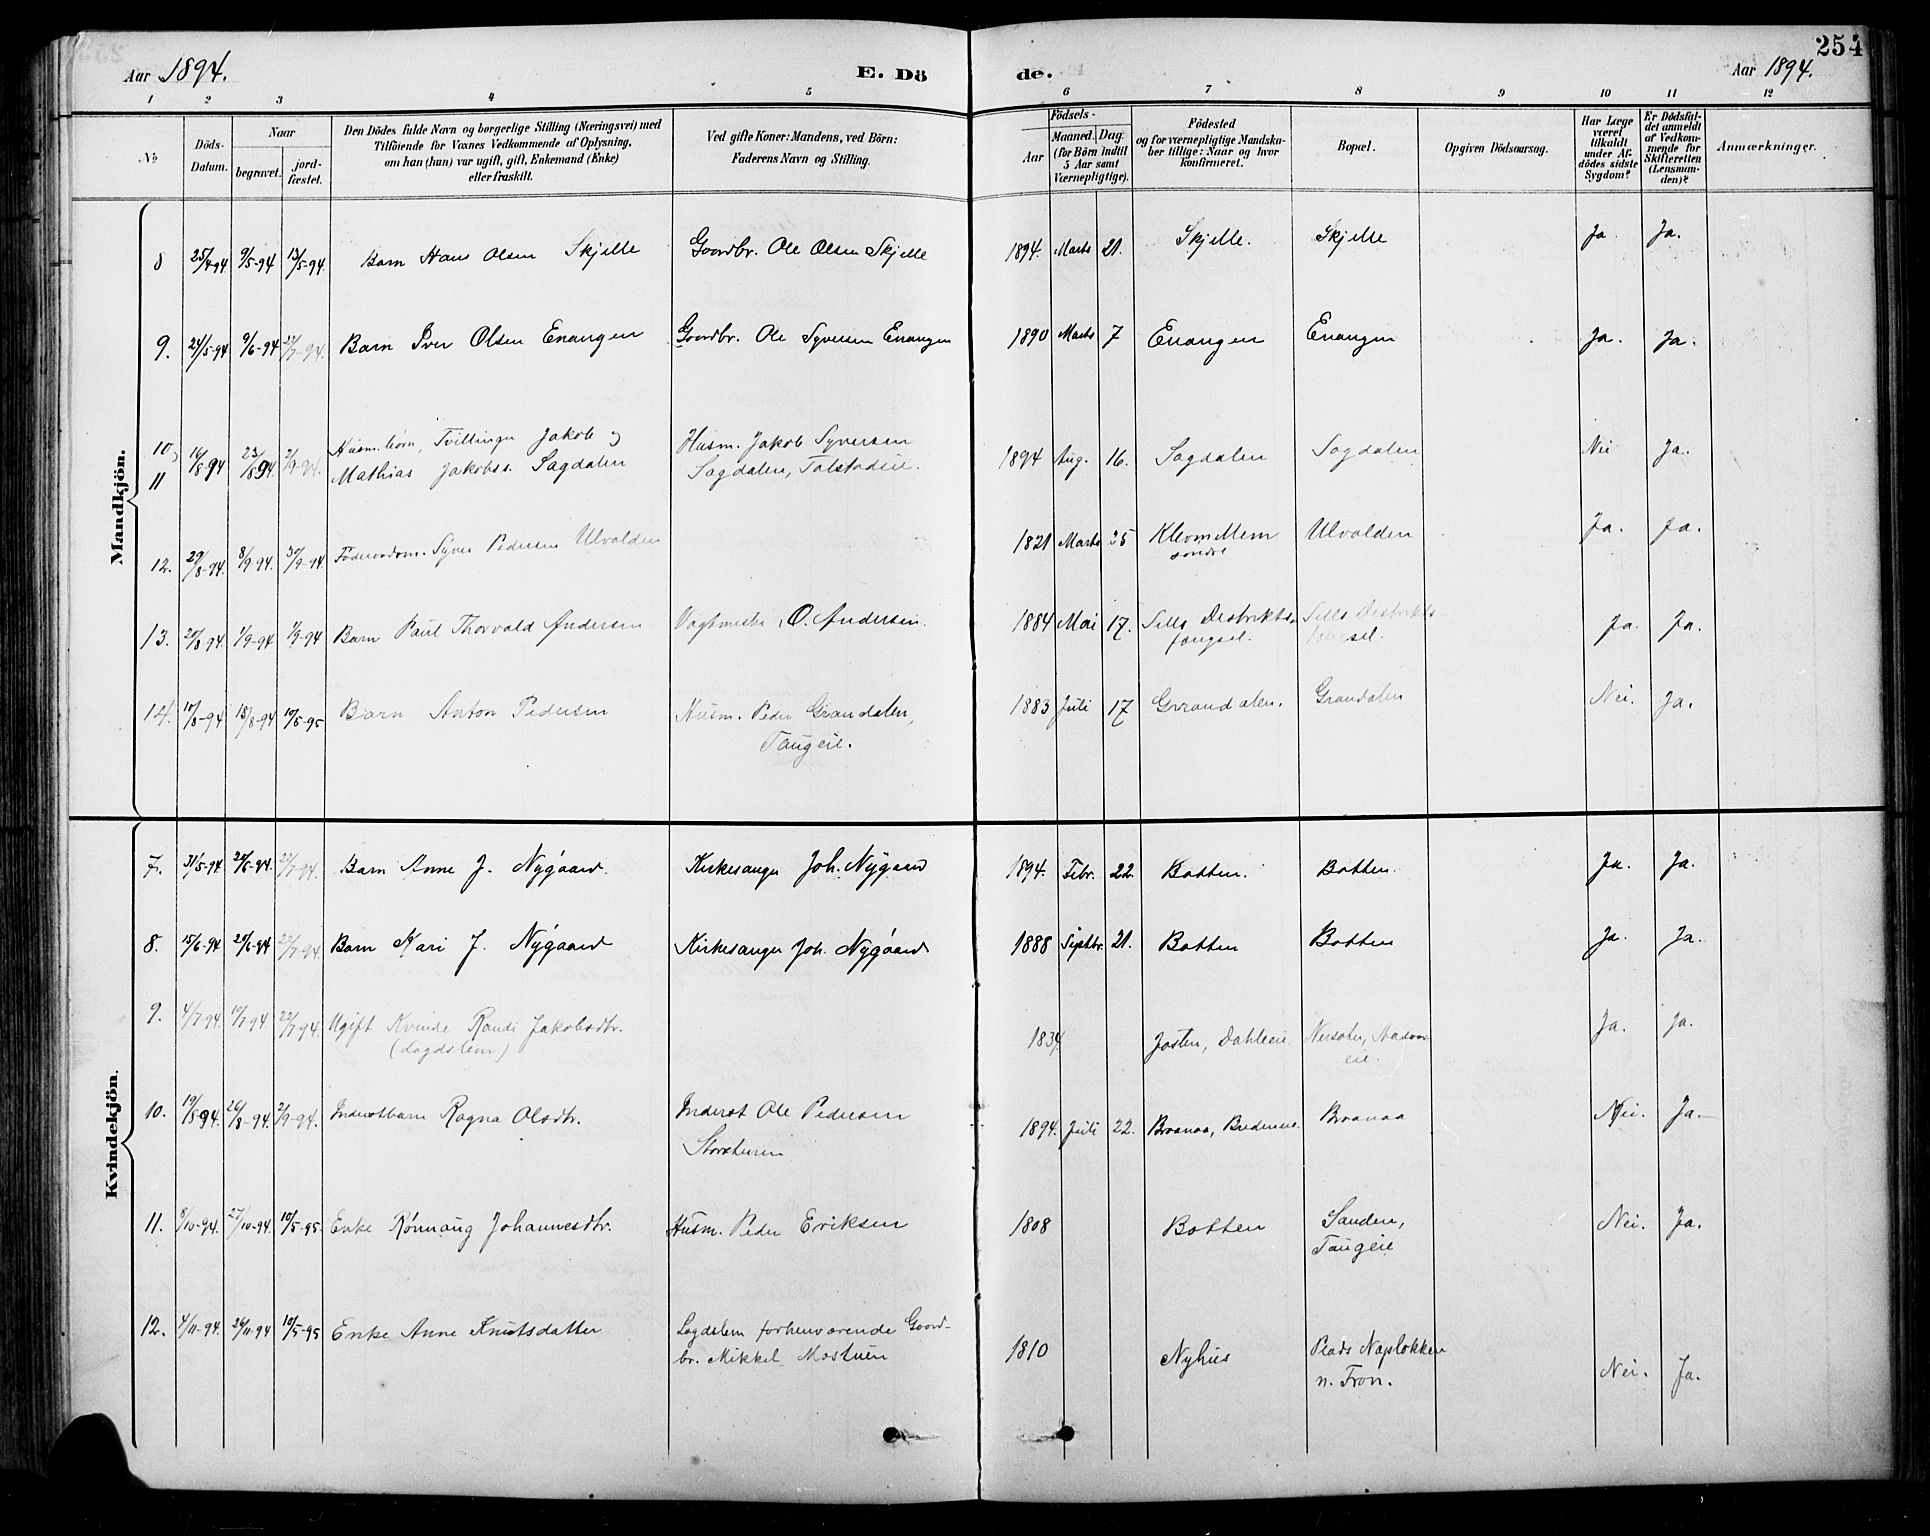 254
Aar 1894. E. Döde. Aar 1894.
1 2 3 4 5 6 7 8 9 10 11 12
№
Döds-Datum.
Naar
begravet.
jord-fæstet.
Den Dödes fulde Navn og borgerlige Stilling (Næringsvei) med
Tilföiende for Voxnes Vedkommende af Oplysning,
om han (hun) var ugift, gift, Enkemand (Enke)
eller fraskilt.
Ved gifte Koner: Mandens, ved Börn:
Faderens Navn og Stilling.
Födsels-
Aar
Maaned. Dag.
(for Börn indtil
5 Aar samt
Værnepligtige).
Födested
og for værnepligtige Mandska-
ber tillige: Naar og hvor
konfirmeret.
Bopæl.
Opgiven Dödsaarsag.
Har Læge
været
tilkaldt
under Af-
dödes sidste
Sygdom?
Er Dödsfal-
det anmeldt
af Vedkom-
mende for
Skifteretten
(Lensman-
den)?
Anmærkninger.
Mandkjön.
8 25/4-94 9/5-94 13/5-94. Barn Hans Olsen Skjelle Gaardbr. Ole Olsen Skjelle 1894. Marts 21. Skjelle. Skjelle Ja. Ja.
9. 24/5-94 9/6-94 22/7-94. Barn Iver Olsen Enangen Gaardbr. Ole Syversen Enangen 1890 Marts 7 Enangen Enangen Ja. Ja.
10, 11 16/8-94 23/8-94. 2/9-94. Husm.börn, Tvillinger Jakob og Husm. Jakob Syversen 1894 Aug. 16. Sagdalen Sagdalen Nei Ja.
Mathias Jakobss. Sagdalen Sagdalen, Tolstadeie.
12. 29/8-94. 8/9-94. 30/9-94 Föderaadsm. Syver Pedersen Ulvolden 1821 Marts 25 Klevmellem Ulvolden Ja. Ja.
söndre
13. 20/8-94. 1/9-94 1/9-94 Barn Paul Thorvald Andersen Vagtmester O. Andersen. 1884 Mai 17. Sells Destrikts- Sells Destrikts- Ja. Ja.
fængsel. fængsel.
14. 10/8-94 18/8-94 10/5-95 Barn Anton Pedersen Husm. Peder Grandalen, 1883 Juli 17 Grandalen. Grandalen Nei. Ja.
Taugeie.
Kvindekjön.
7. 31/5-94 /6-94. 22/7-94. Barn Anne J. Nygaard. Kirkesanger Joh. Nygaard 1894. Febr. 22. Botten. Botten. Ja. Ja.
8. 15/6-94 /6-94 22/7-94. Barn Kari J. Nygaard Kirkesanger Joh. Nygaard 1888 Septbr. 21. Botten Botten Ja. Ja.
9. 4/7-94. /7-94. 22/7-94. Ugift Kvinde Randi Jakobsdtr. 1834. Dahleeie. Ja. Ja.
(Lagdslem) eie.
10. 19/8-94 26/8-94. 2/9-94. Inderstbarn Ragna Olsdtr. Inderst Ole Pedersen 1894. Juli 22. Branaa, Bredeune. Branaa Nei. Ja.
Storstuen
11. 8/10-94. 27/10-94. 10/5-95. Enke Rönnaug Johannesdtr. Husm. Peder Eriksen 1808 Botten Sanden, Nei. Ja.
Taugeie
12. 4/11-94. /11-94 10/5-95 Enke Anne Knutsdatter Lagdslem forhenværende Gaard- 1810 Nyhus Plads Napslokken Nei. Ja.
br. Mikkel Mostuen n. Fron.